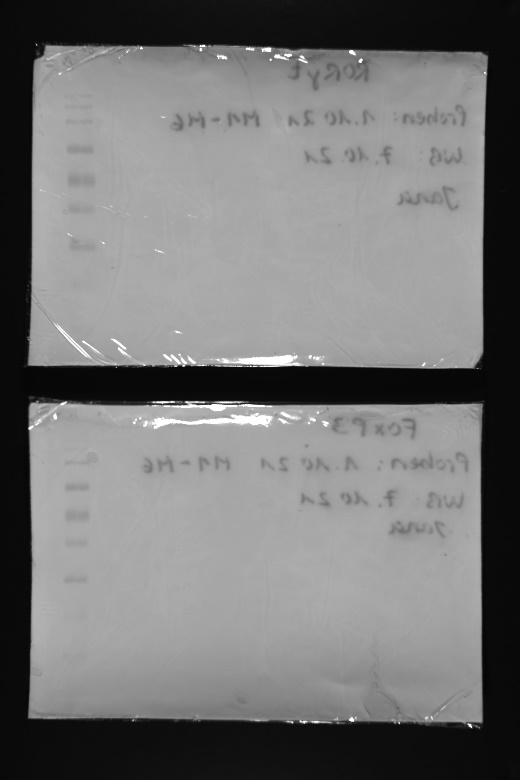 RORγt
Proben: 1.10.21 M1-M6
WB: 7.10.21
Jana
FoxP3
Proben: 1.10.21 M1-M6
WB: 7.10.21
Jana